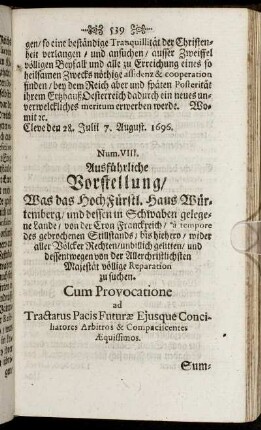 539
gen/ so eine beständige Tranquillität der Christen-
heit verlangen / und ansuchen / ausser Zweiffel
völligen Beyfall und alle zu Erreichung eines so
heilsamen Zwecks nöthige assidenz & cooperation
finden / bey dem Reich aber und späten Posterität
ihrem Ertzhauß Oesterreich dadurch ein neues un-
verwelckliches meritum erwerben werde. Wo-
mit ꝛc.
Cleve den 28. Julii 7. August. 1696.
Num. VIII.
Ausführliche
Vorstellung /
Was das HochFürstl. Haus Wür-
temberg / und dessen in Schwaben gelege-
ne Lande / von der Cron Franckreich / à tempore
des gebrochenen Stillstands / bis hiehero / wider
aller Völcker Rechten / unbillich gelitten / und
dessentwegen von der Allerchristlichsten
Majestät völlige Reparation
zu suchen.
Cum Provocatione
ad
Tractatus Pacis Futuræ Ejusque Conci-
liatores Arbitros & Compaciscentes
Æquissimos.
Sum-